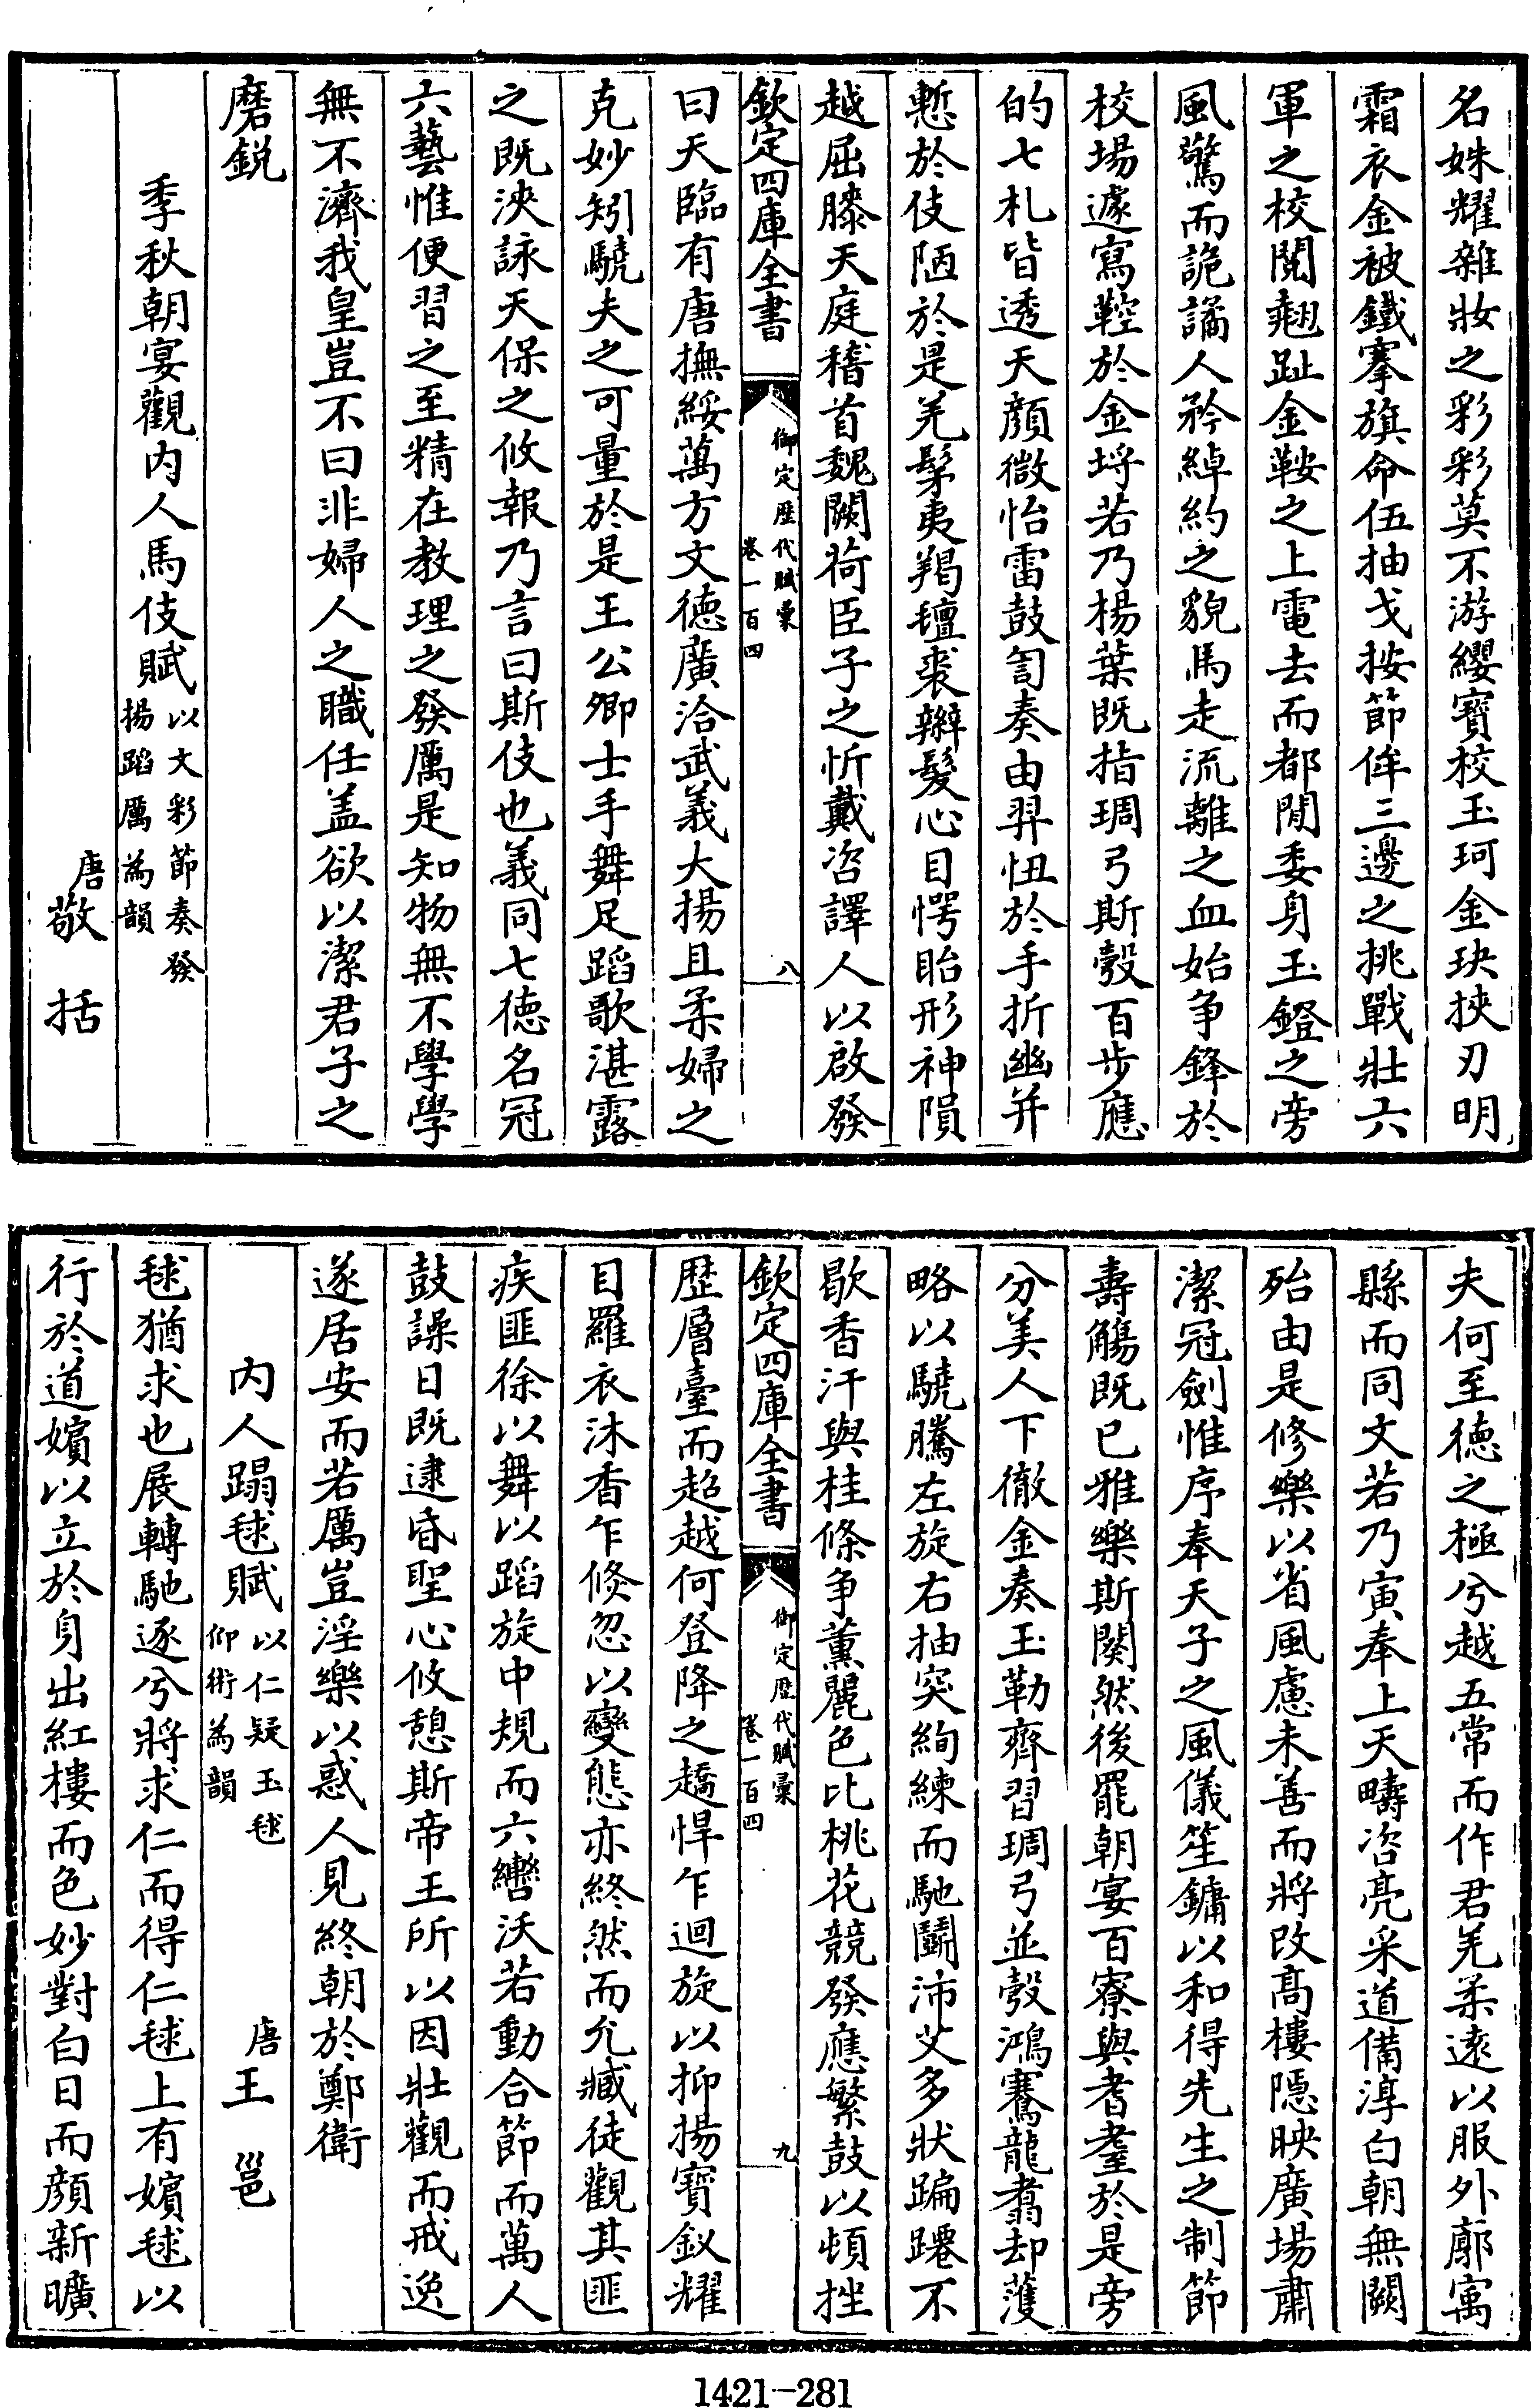 名姝耀雜妝之彩彩莫不游纓寳校玉珂金玦挾刃明
霜衣金被鐵搴旗命伍抽戈按節侔三邊之挑戰壯六
軍之校閱翹趾金鞍之上電去而都閒委身玉鐙之旁
風驚而詭譎人矜綽約之貌馬走流離之血始争鋒於
校場遽寫鞚於金埒若乃楊葉既指琱弓斯彀百步應
的七札皆透天顔微怡雷鼓訇奏由羿忸於手折幽并
慙於伎陋於是羌髳夷羯氊裘辮髮心目愕眙形神隕
越屈膝天庭稽首魏闕荷臣子之忻戴咨譯人以啟發
欽定四庫全書
御定歴代賦彙
卷一百四
八
曰天臨有唐撫綏萬方文徳廣洽武義大揚且柔婦之
克妙矧驍夫之可量於是王公卿士手舞足蹈歌湛露
之既浹詠天保之攸報乃言曰斯伎也義同七徳名冠
六藝惟便習之至精在教理之發厲是知物無不學學
無不濟我皇豈不曰非婦人之職任盖欲以潔君子之
磨鋭
季秋朝宴觀内人馬伎賦
以文彩節奏發
揚蹈厲為韻
唐敬括
夫何至徳之極兮越五常而作君羌柔逺以服外廓寓
縣而同文若乃寅奉上天疇咨亮采道備淳白朝無闕
殆由是修樂以省風慮未善而將改髙樓隠映廣場肅
潔冠劍惟序奉天子之風儀笙鏞以和得先生之制節
壽觴既已雅樂斯闋然後罷朝宴百寮與耆耋於是旁
分美人下徹金奏玉勒齊習琱弓並彀鴻騫龍翥却蒦
略以驍騰左旋右抽突絢練而馳鬭沛艾多狀蹁躚不
歇香汗與桂條争薫麗色比桃花競發應繁鼓以頓挫
欽定四庫全書
御定歴代賦彙
卷一百四
九
歴層臺而超越何登降之趫悍乍迴旋以抑揚寳釵耀
目羅衣沐香乍倐忽以變態亦終然而允臧徒觀其匪
疾匪徐以舞以蹈旋中規而六轡沃若動合節而萬人
鼓譟日既逮昏聖心攸憩斯帝王所以因壯觀而戒逸
遂居安而若厲豈淫樂以惑人見終朝於鄭衛
内人蹋毬賦
以仁疑玉毬
仰術為韻
唐王邕
毬猶求也展轉馳逐兮將求仁而得仁毬上有嬪毬以
行於道嬪以立於身出紅樓而色妙對白日而顔新曠
1421-281